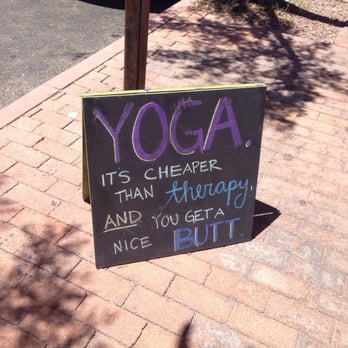 YOGA.
ITS CHEAPER
THAN therapy.
AND YOU GET A
NICE BUTT.